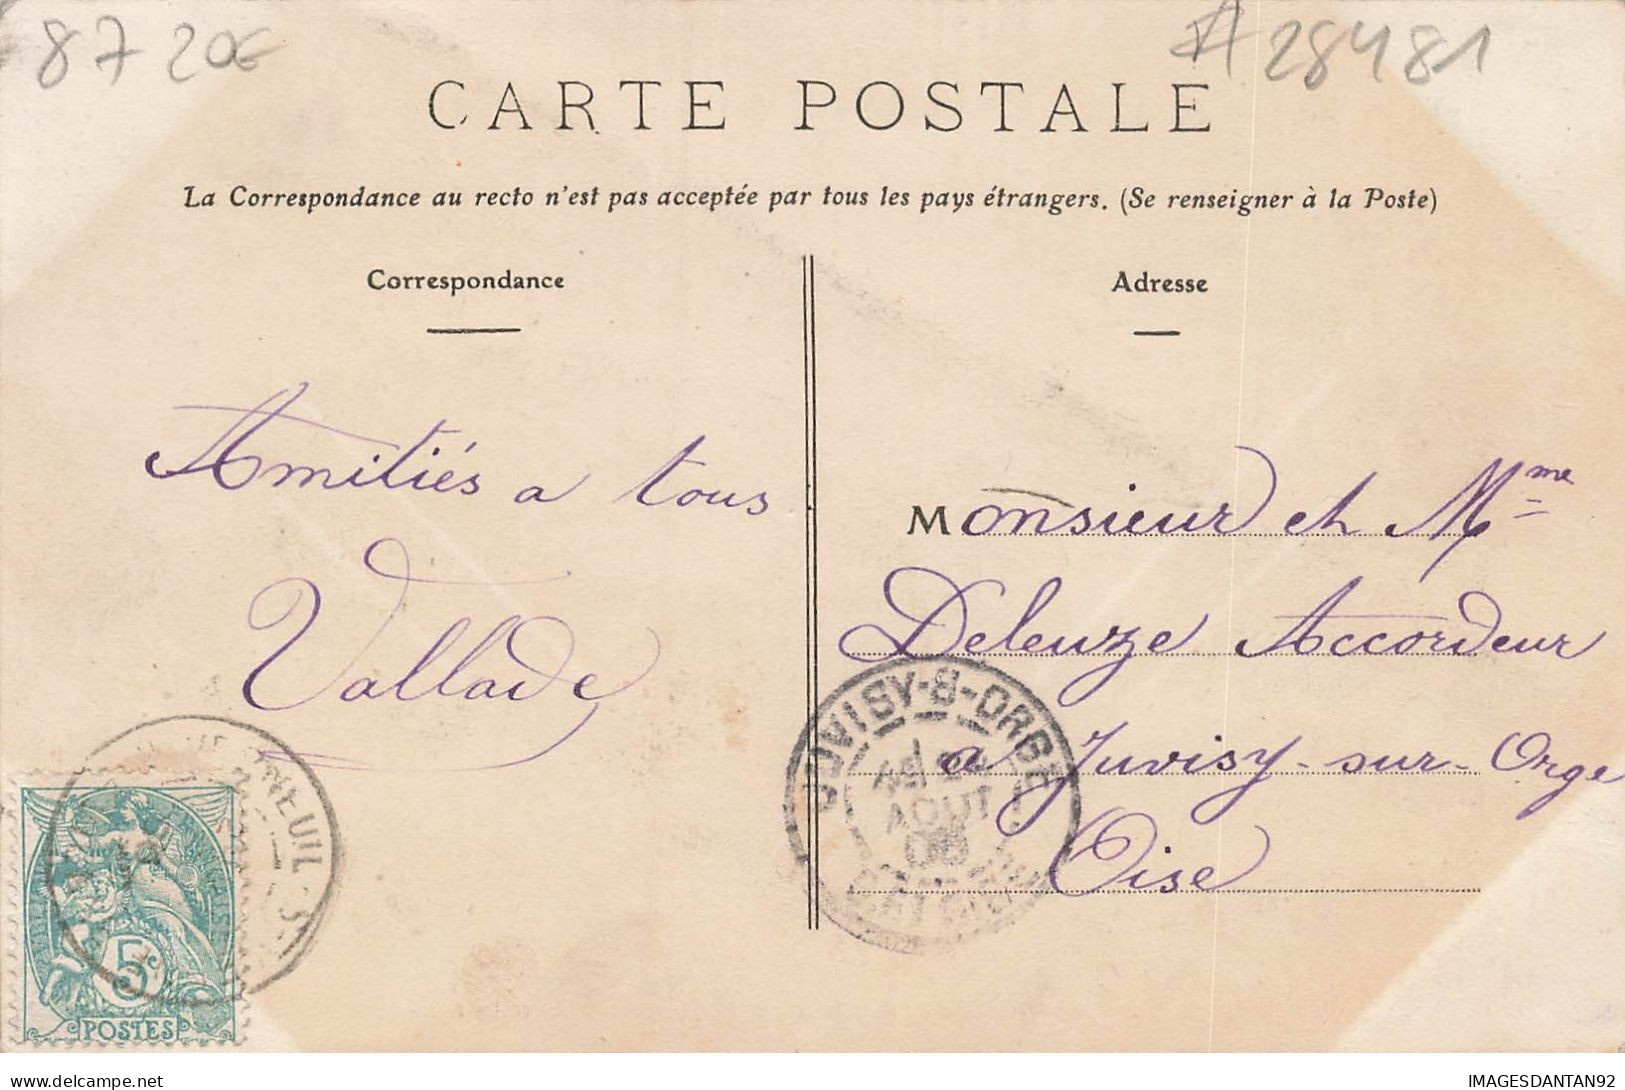 87 20€
#28481
CARTE POSTALE
La Correspondance au recto n'est pas acceptée par tous les pays étrangers. (Se renseigner à la Poste)
Correspondance
Adresse
Amitiés a tous
Vallade
Monsieur et Mme
Deleuze Accordeur
a Juvisy-sur-Orge
Oise
JUVISY-S-ORGE
AOUT
5c
POSTES
delcampe.net
IMAGESDANTAN92